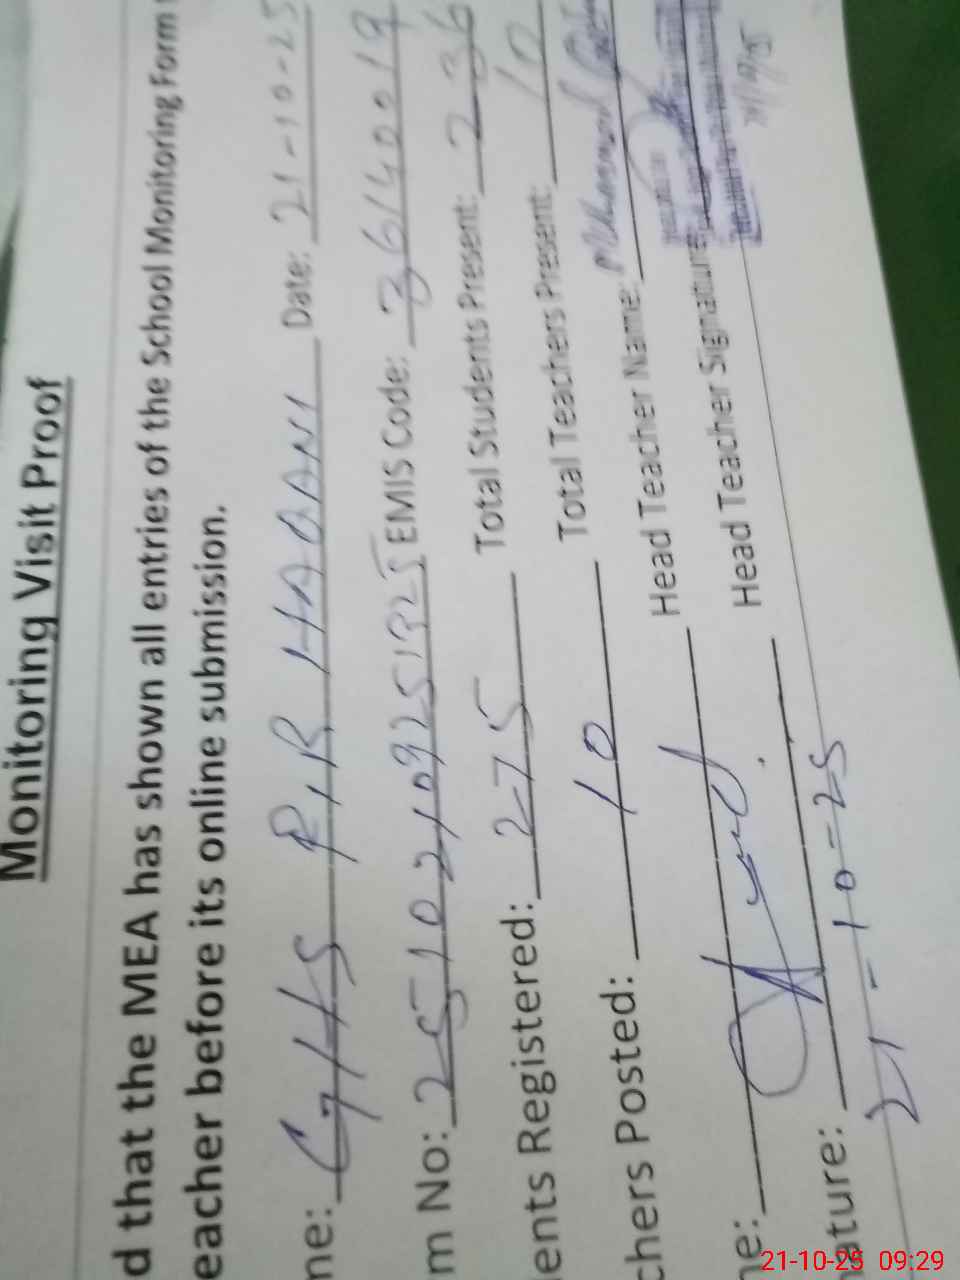 Monitoring Visit Proof
d that the MEA has shown all entries of the School Monitoring Form
eacher before its online submission.
ne: GHHS PIR HAQANI Date: 21-10-25
m No: 25102109251325 EMIS Code: 36140019
ents Registered: 275 Total Students Present: 236
chers Posted: 10 Total Teachers Present: 10
ne: Head Teacher Name: Muhammad
ature: Head Teacher Signature:
21-10-25
21-10-25 09:29